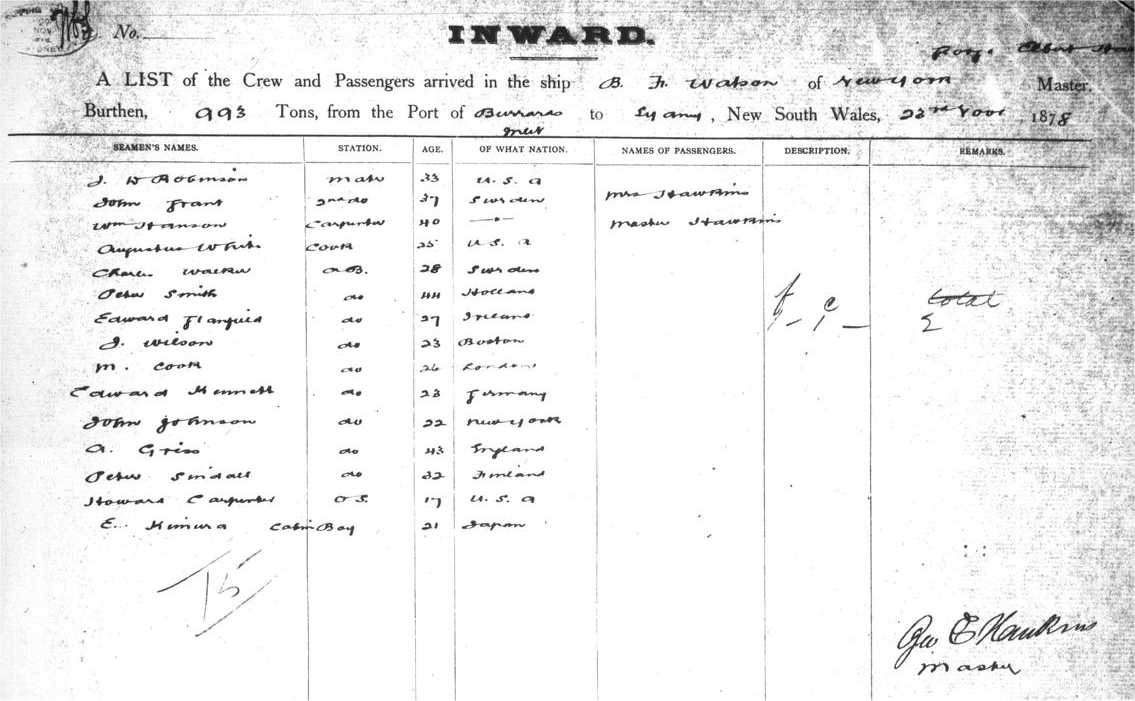 No.
INWARD.
A LIST of the Crew and Passengers arrived in the ship B. F. Watson of New York Master,
Burthen, 993 Tons, from the Port of Burrard Inlet to Sydney, New South Wales, 22nd Novr 1878
SEAMEN'S NAMES. STATION. AGE. OF WHAT NATION. NAMES OF PASSENGERS. DESCRIPTION. REMARKS.
J. W Robinson mate 33 U. S. A
John Frant 2nd do 37 Sweden Mrs Hawkins
Wm Hanson Carpenter 40 — " — Master Hawkins
Augustus White Cook 25 U S. A
Charles Walker A B. 28 Sweden
Peter Smith do 44 Holland
Edward do 27 Ireland
J. Wilson do 23 Boston
M. Cook do 26 London
Edward Kennett do 23 Germany
John Johnson do 22 New York
A. Griss do 43 England
Peter Sindall do 32 Finland
Howard Carpenter O S. 17 U. S. A
E. Kimura Cabin Boy 21 Japan
total
2
15
Geo E Hawkins
Master